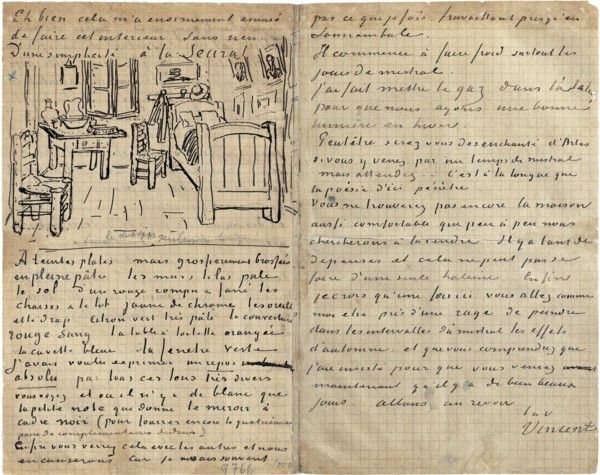 Eh bien cela m'a enormement amusé
de faire cet interieur sans rien
D'une simplicité à la Seurat
A teintes plates mais grossierement brossées
en pleine pâte les murs lilas pale
le sol d'un rouge rompu & fané les
chaises & le lit jaune de chrome les oreillers
et le drap citron vert très pâle la couverture
rouge sang la table à toilette orangée
la cuvette bleue la fenetre verte
J'avais voulu exprimer un repos
absolu par tous ces tons très divers
vous voyez et où il n'y a de blanc que
la petite note que donne le miroir à
cadre noir (pour fourrer encore la quatrième
paire de complementaires dedans)
Enfin vous verrez cela avec les autres et nous
en causerons car je ne sais souvent
pas ce que je fais travaillant presqu'en
somnambule.
Il commence à faire froid surtout les
jours de mistral.
J'ai fait mettre le gaz dans l'atelier
pour que nous ayons une bonne
lumière en hiver
Peutêtre serez vous desenchanté d'Arles
si vous y venez par un temps de mistral
mais attendez... C'est à la longue que
la poésie d'ici pénètre
Vous ne trouverez pas encore la maison
aussi comfortable que peu à peu nous
chercherons à la rendre Il y a tant de
depenses et cela ne peut pas se
faire d'une seule haleine Enfin
je crois qu'une fois ici vous allez comme
moi etre pris d'une rage de peindre
dans les intervalles du mistral les effets
d'automne et que vous comprendrez que
j'ai insisté pour que vous venez
maintenant qu'il y a de bien beaux
jours allons, au revoir
t. à v
Vincent